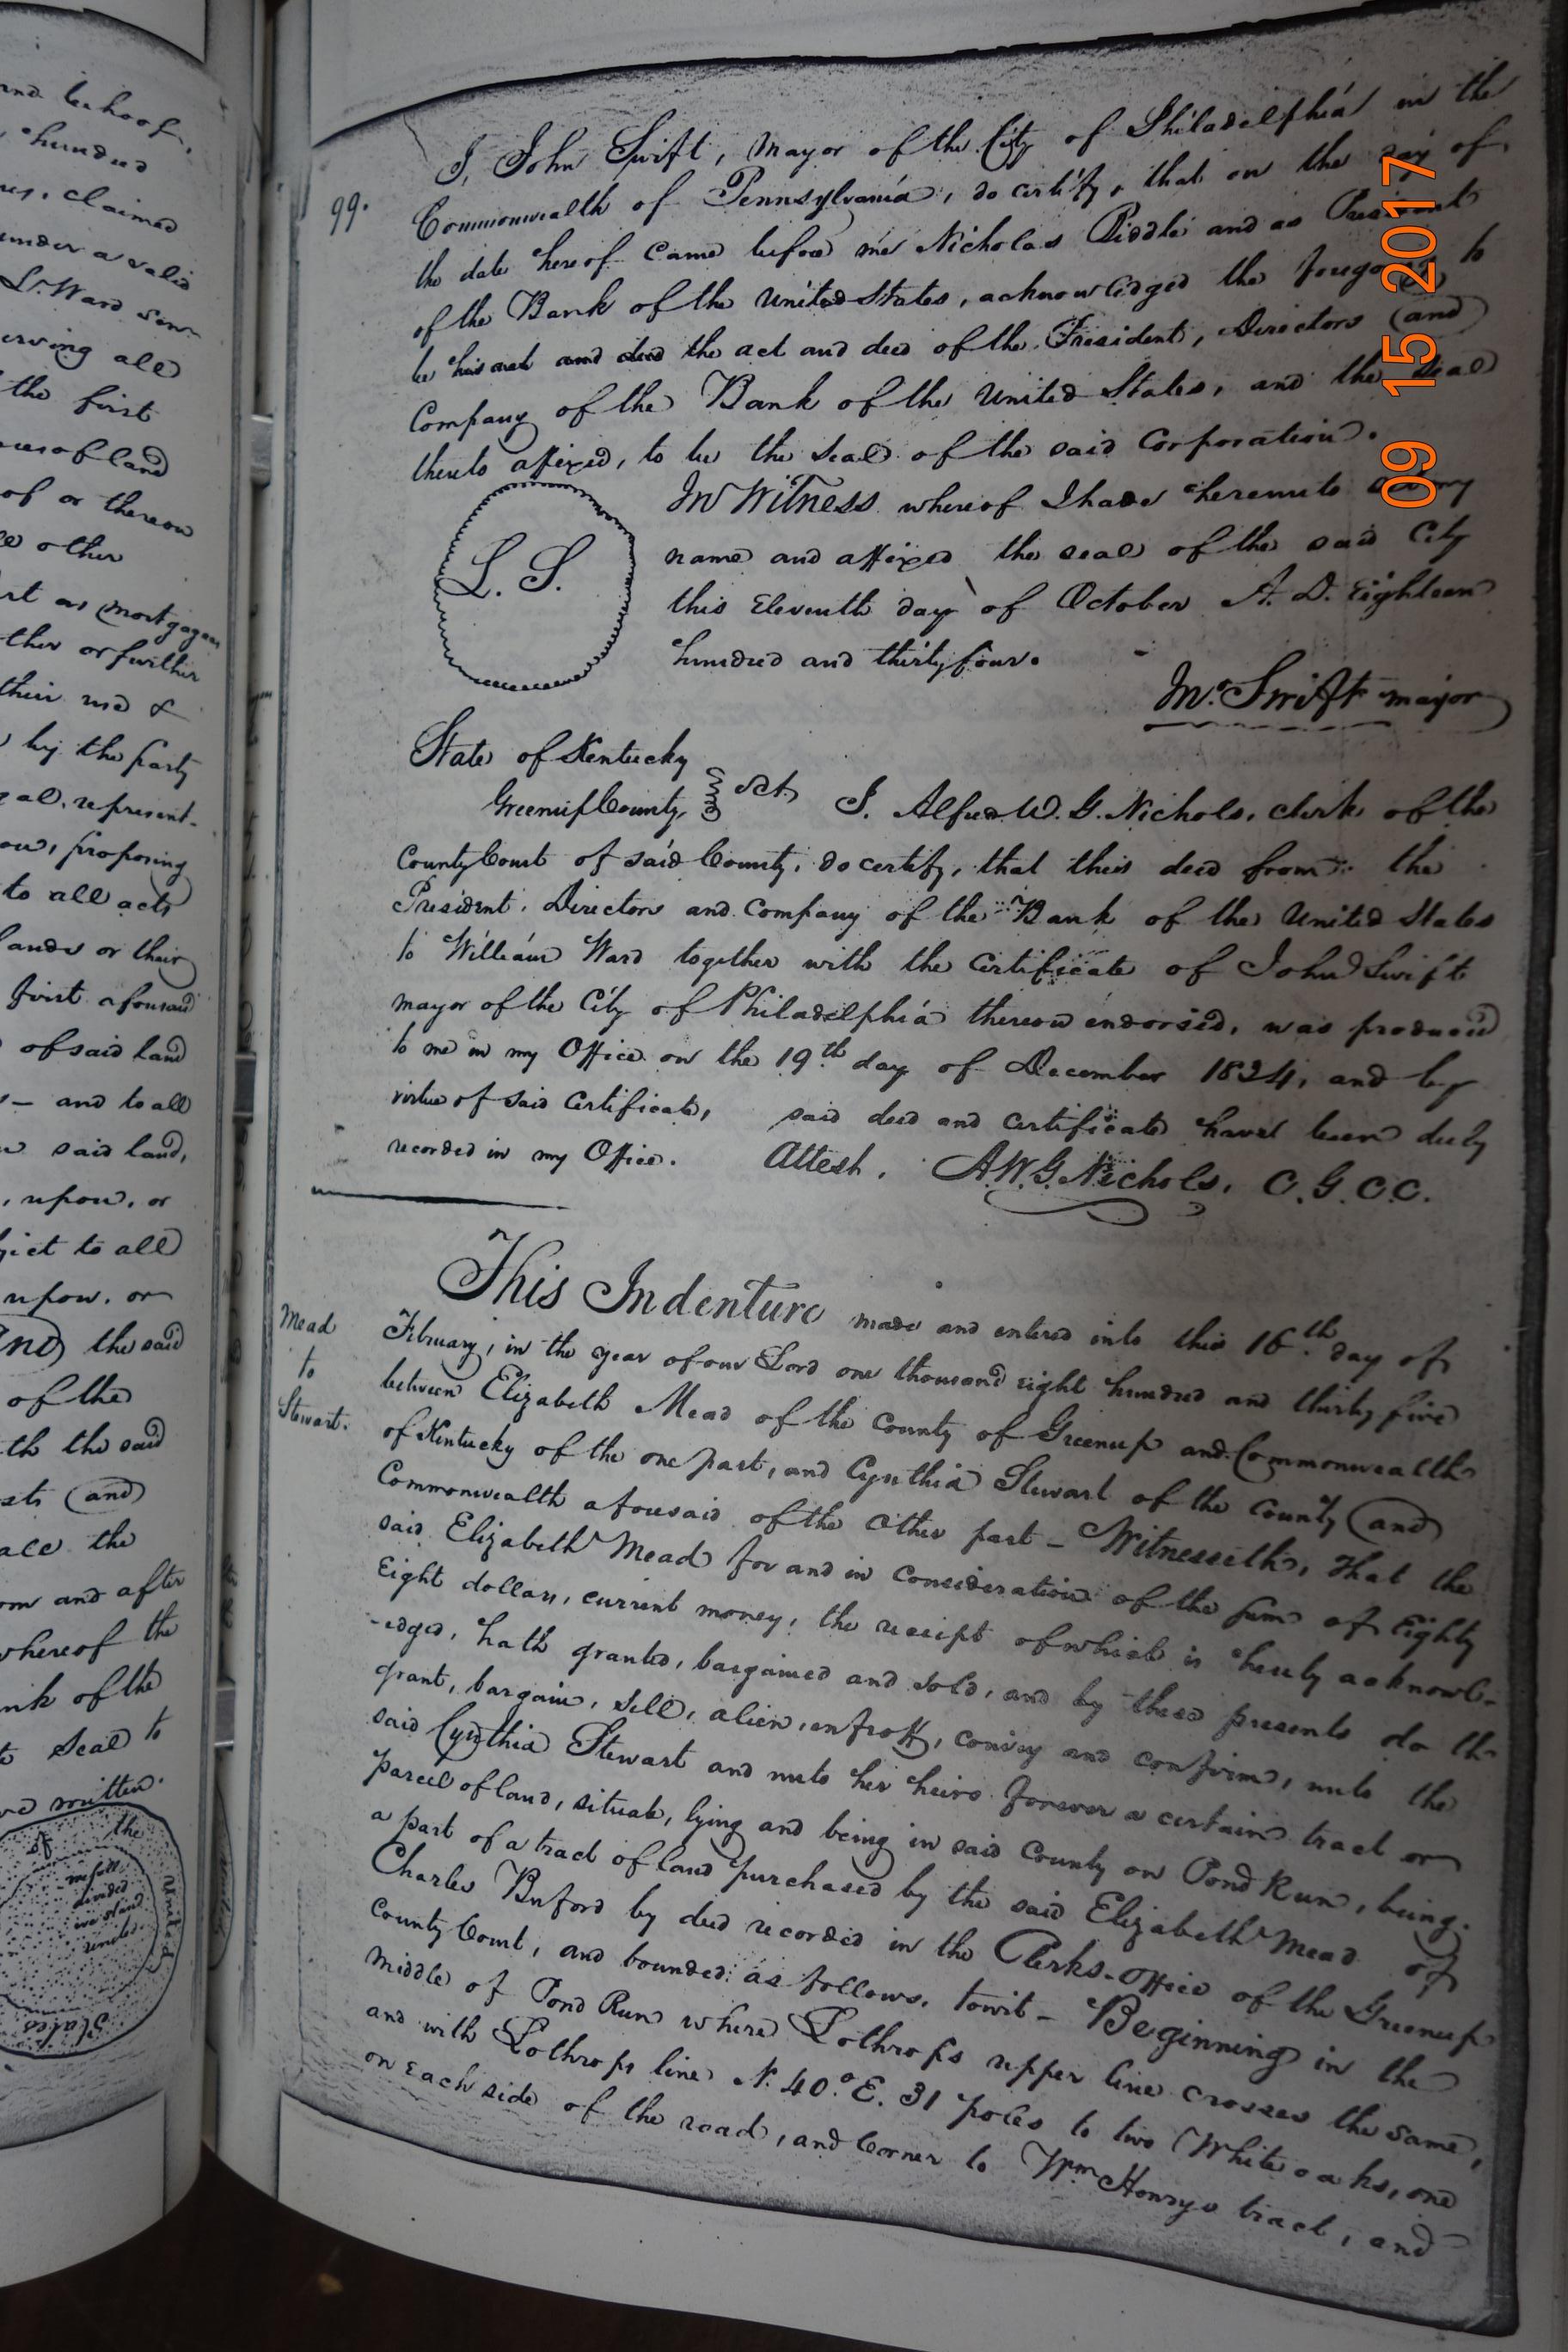 and behoof,
hundred
claimed
under a valid
Ward
all
the first
of land
of or thereon
other
as mortgagee
or further
their use &
by the party
represent-
proposing
to all acts
lands or their
first aforesaid
of said land
- and to all
said land,
, upon, or
to all
upon, or
and the said
of the
the said
(and)
the
and after
whereof the
of the
Seal to
written
of the United States
99.
I, John Swift, Mayor of the City of Philadelphia in the
Commonwealth of Pennsylvania, do certify, that on the day of
the date hereof came before me Nicholas Biddle and as President
of the Bank of the United States, acknowledged the foregoing to
be his act and deed the act and deed of the President, Directors (and)
Company of the Bank of the United States, and the seal
thereto affixed, to be the seal of the said Corporation.
In Witness whereof I have hereunto my
name and affixed the seal of the said City
this Eleventh day of October A. D. Eighteen
hundred and thirty four.
L. S.
Jno. Swift mayor
State of Kentucky
Greenup County, Sct. I, Alfred W. G. Nichols, clerk of the
County Court of said County, do certify, that this deed from the
President, Directors and Company of the Bank of the United States
to William Ward together with the certificate of John Swift
mayor of the City of Philadelphia thereon endorsed, was produced
to me in my Office on the 19th day of December 1834, and by
virtue of said certificate, said deed and certificate have been duly
recorded in my Office. Attest. A.W.G. Nichols, C.G.C.C.
Mead
to
Stewart.
This Indenture made and entered into this 16th day of
February, in the year of our Lord one thousand eight hundred and thirty five
between Elizabeth Mead of the County of Greenup and Commonwealth
of Kentucky of the one part, and Cynthia Stewart of the County (and)
Commonwealth aforesaid of the other part - Witnesseth, that the
said Elizabeth Mead for and in consideration of the sum of Eighty
Eight dollars, current money, the receipt of which is hereby acknowl-
-edged, hath granted, bargained and sold, and by these presents do th-
grant, bargain, sell, alien, enfeoff, convey and confirm, unto the
said Cynthia Stewart and unto her heirs forever a certain tract or
parcel of land, situate, lying and being in said County on Pond Run, being
a part of a tract of land purchased by the said Elizabeth Mead of
Charles Buford by deed recorded in the Clerks-office of the Greenup
County Court, and bounded as follows, towit - Beginning in the
middle of Pond Run where Lothrops upper line crosses the same,
and with Lothrops line N. 40° E. 31 poles to two White oaks, one
on each side of the road, and corner to Wm Henrys tract, and
09 15 2017